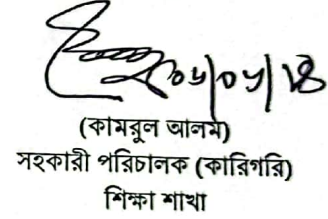 (কামরুল আলম)
সহকারী পরিচালক (কারিগরি)
শিক্ষা শাখা